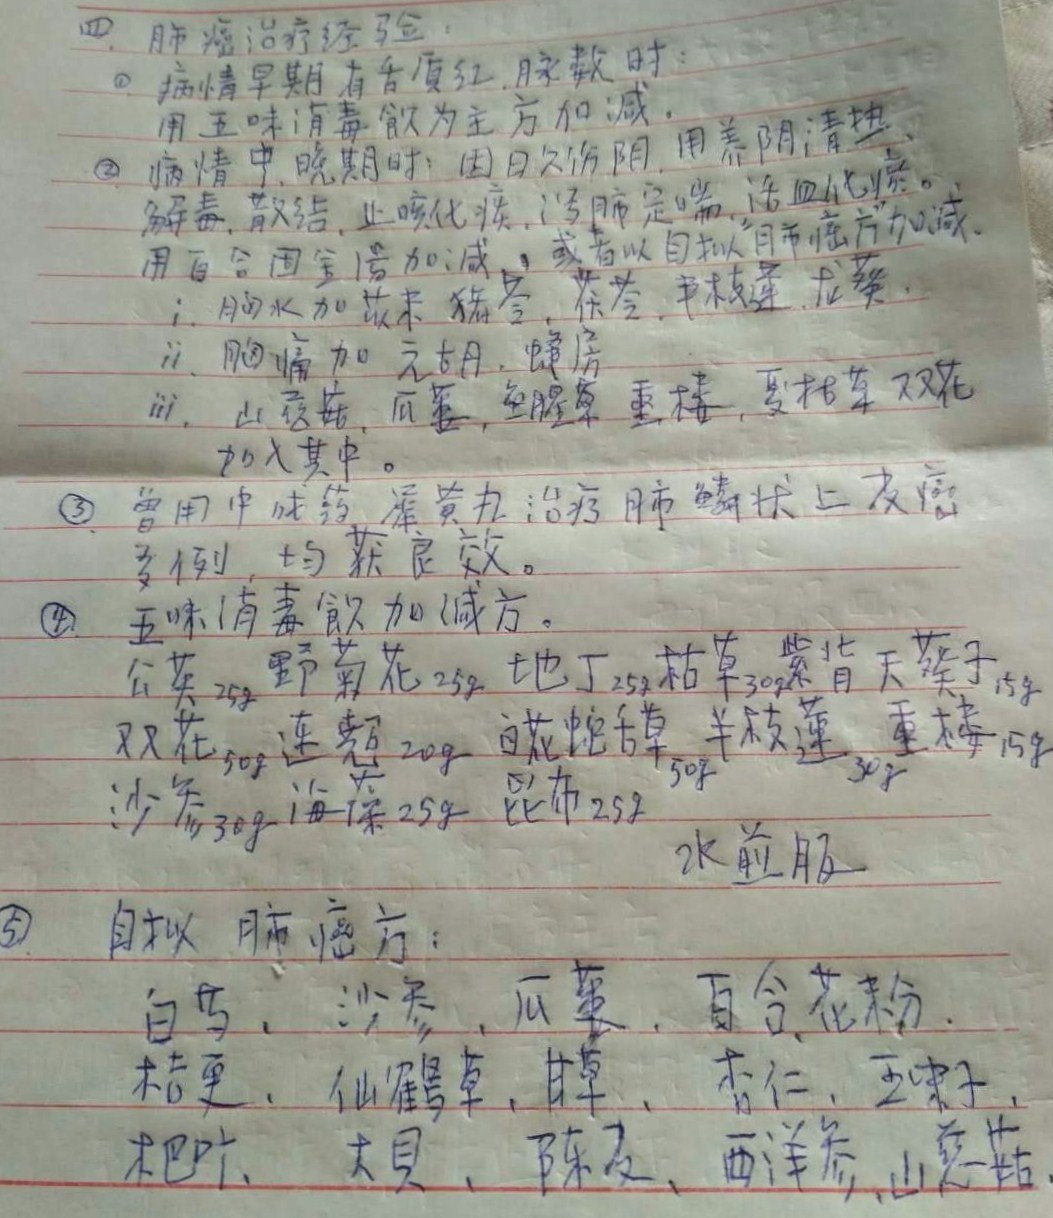 四. 肺癌治疗经验:
① 病情早期有舌质红、脉数时:
用五味消毒飲为主方加减.
② 病情中、晚期时: 因日久伤阴, 用养阴清热、
解毒、散结, 止咳化痰, 泻肺定喘, 活血化瘀。
用百合固金湯加减。或者以自拟"肺癌方"加减.
i. 胸水加莪术 猪苓、茯苓、半枝莲、龙葵.
ii. 胸痛加 元胡、蜂房
iii. 山茨菇、瓜蒌, 鱼腥草 重楼, 夏枯草 双花
加入其中。
③ 曾用中成药 犀黄丸治疗肺鳞状上皮癌
多例, 均获良效。
④ 五味消毒飲加减方。
公英25g 野菊花25g 地丁25g 枯草30g 紫背天葵子15g
双花50g 连翘20g 白花蛇舌草50g 半枝蓮30g 重楼15g
沙参30g 海藻25g 昆布25g
水煎服
⑤ 自拟 肺癌方:
白芍、沙参、瓜蒌、百合、花粉.
桔更、仙鹤草、甘草、杏仁、五味子、
杷叶、大贝、陈皮、西洋参、山慈菇、